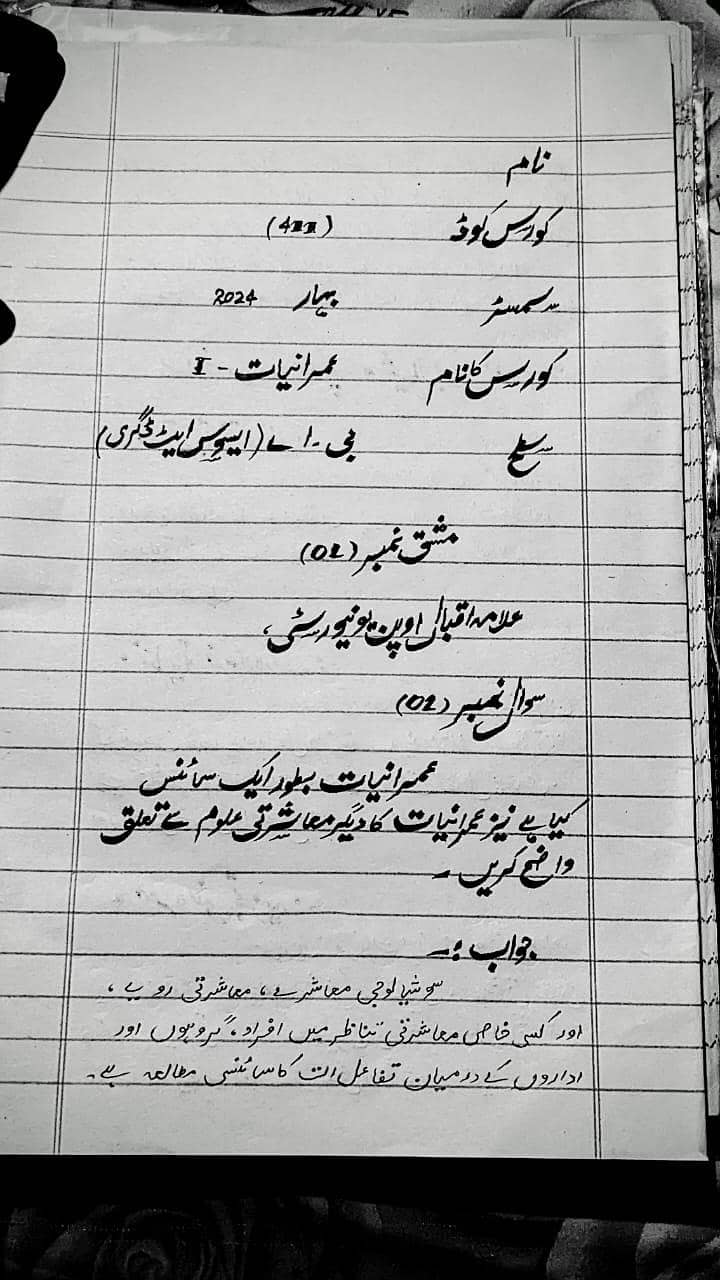 نام
کورس کوڈ (411)
سمسٹر بہار 2024
کورس کا نام عمرانیات - I
سطح بی - اے (ایسوسی ایٹ ڈگری)
مشق نمبر (01)
علامہ اقبال اوپن یونیورسٹی،
سوال نمبر (01)
عمرانیات بطور ایک سائنس
کیا ہے نیز عمرانیات کا دیگر معاشرتی علوم سے تعلق
واضح کریں ۔
جواب :۔
سوشیالوجی معاشرے ، معاشرتی رویے ،
اور کسی خاص معاشرتی تناظر میں افراد، گروہوں اور
اداروں کے درمیان تفاعل ات کا سائنسی مطالعہ ہے۔